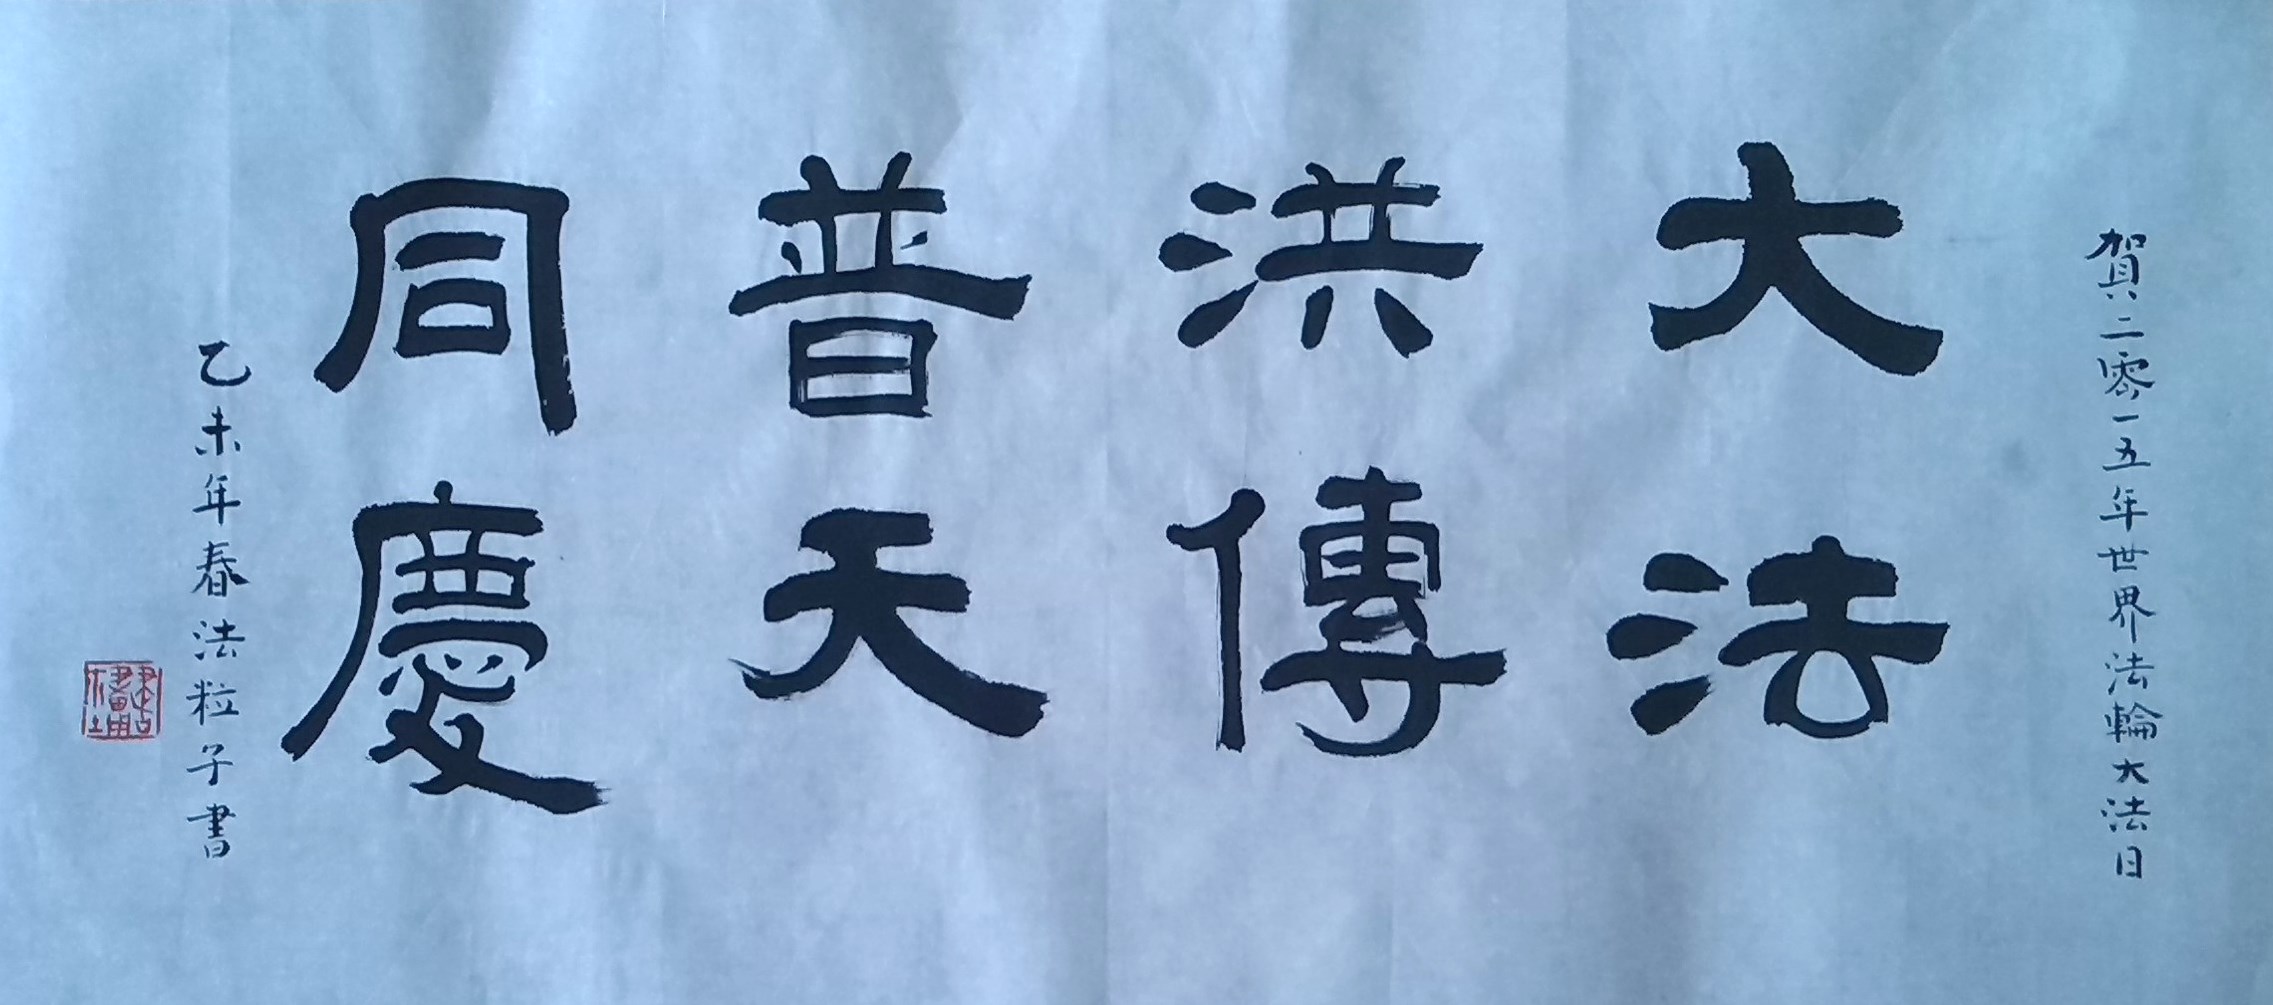 賀二零一五年世界法輪大法日
大法
洪傳
普天
同慶
乙未年春法粒子書